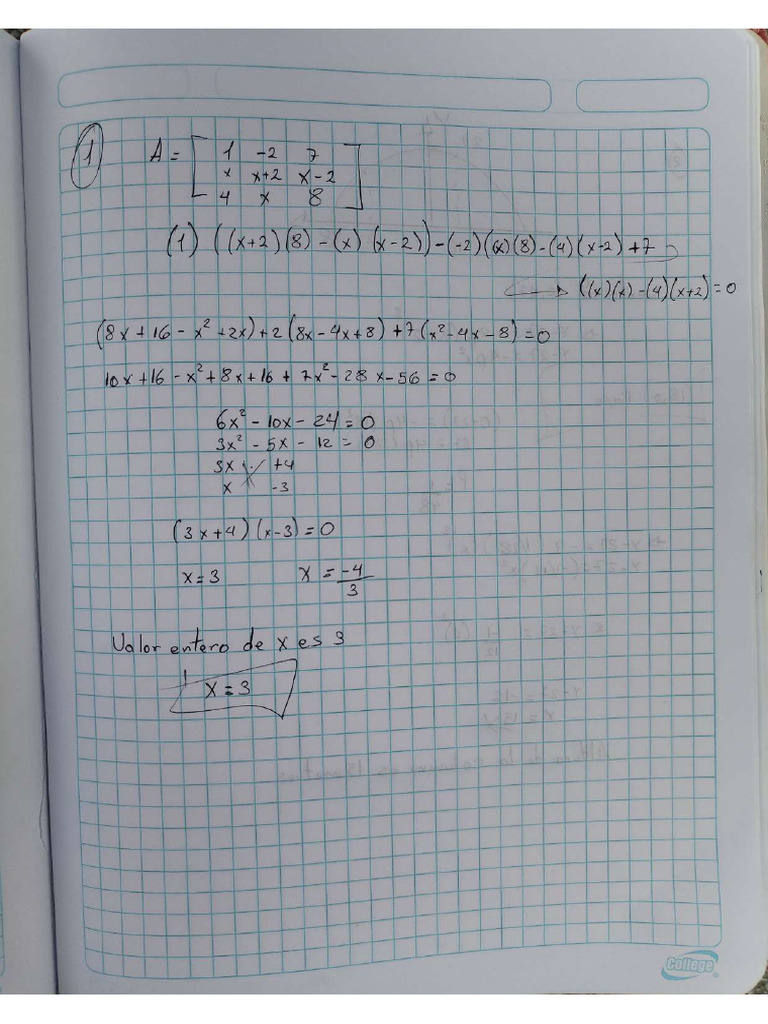 1
A = [ 1 -2 7
x x+2 x-2
4 x 8 ]
(1) ((x+2)(8) - (x)(x-2)) - (-2)((x)(8) - (4)(x-2) + 7
((x)(x) - (4)(x+2) = 0
(8x + 16 - x² + 2x) + 2(8x - 4x + 8) + 7(x² - 4x - 8) = 0
10x + 16 - x² + 8x + 16 + 7x² - 28x - 56 = 0
6x² - 10x - 24 = 0
3x² - 5x - 12 = 0
3x +4
x -3
(3x + 4)(x - 3) = 0
x = 3 x = -4/3
Valor entero de x es 3
x = 3
College